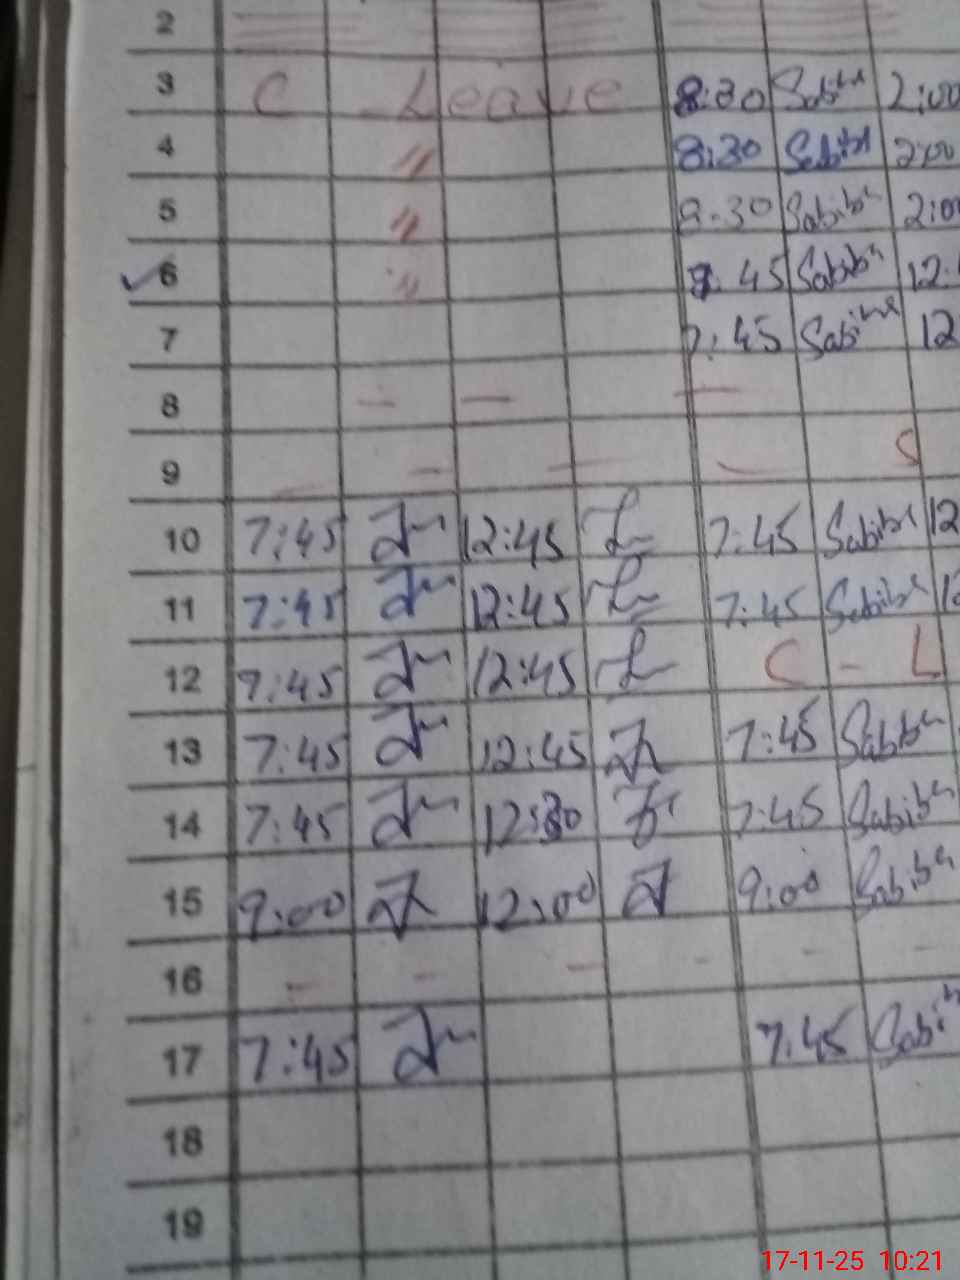 2
3 C Leave 8:30 Sabiha 2:00
4 " 8:30 Sabiha 2:00
5 " 8:30 Sabiha 2:00
6 " 7:45 Sabiha 12:
7 7:45 Sabiha 12
8 — — —
9 — — — — S
10 7:45 12:45 7:45 Sabiha 12
11 7:45 12:45 7:45 Sabiha 12
12 7:45 12:45 C - L
13 7:45 12:45 7:45 Sabiha
14 7:45 12:30 7:45 Sabiha
15 9:00 12:00 9:00 Sabiha
16 - - - - - -
17 7:45 7:45 Sabih
18
19
17-11-25 10:21